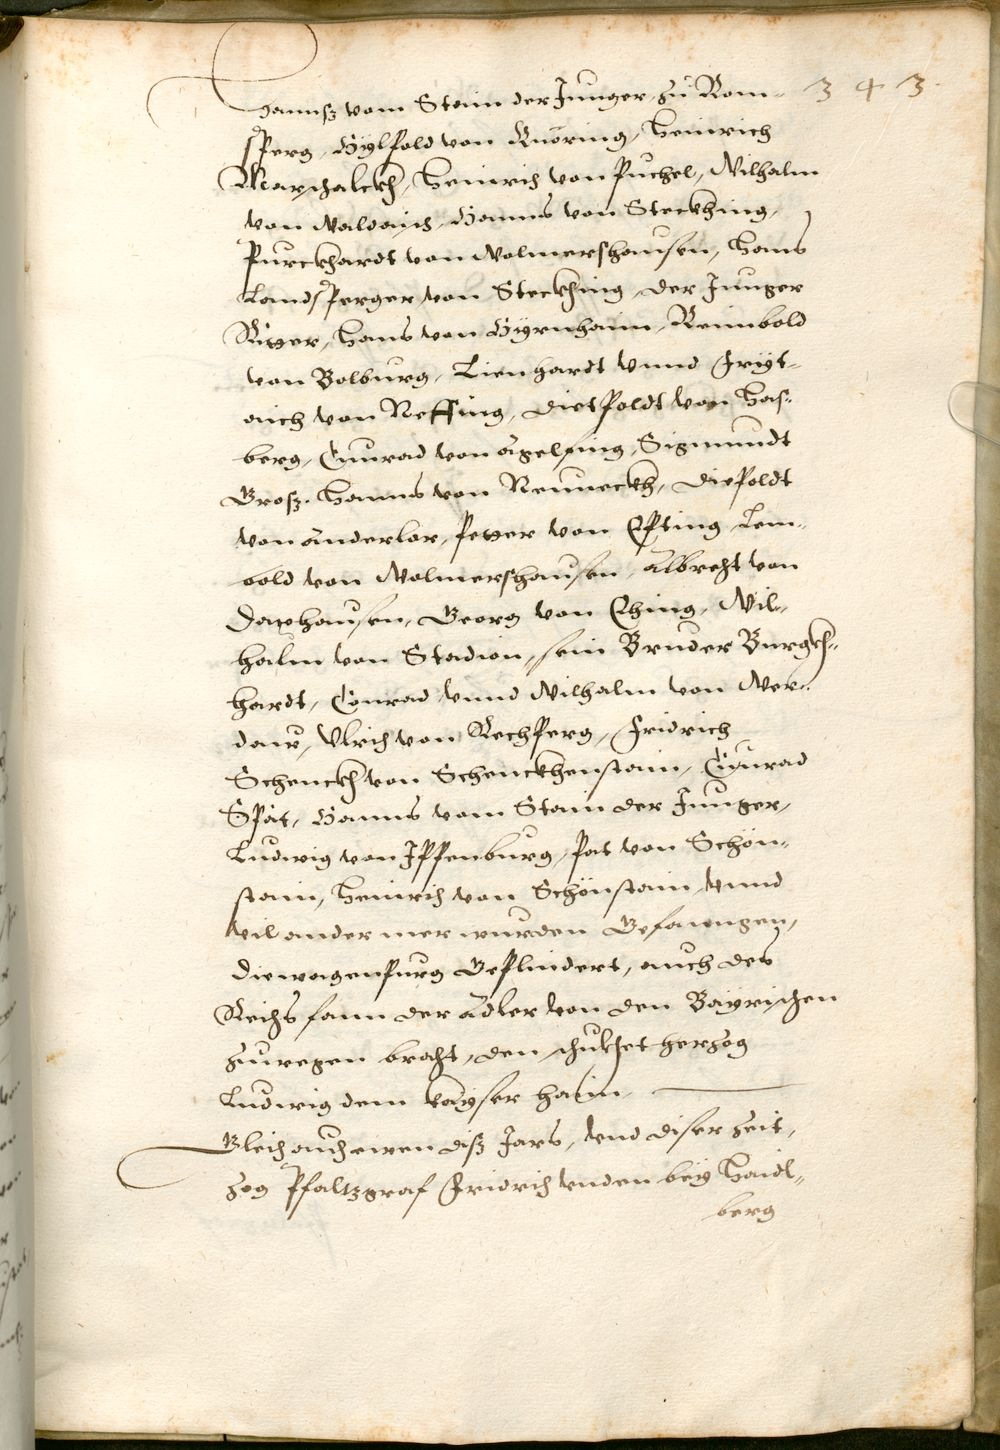 Hannß vom Stain der Junger zu Rom- 343.
sperg, Hylpold von Knöring, Heinrich
Marschalckh, Heinrich von Puchel, Wilhalm
von Waldaich, Hanns von Steckhing,
Purckhardt von Wolmershausen, Hans
Landsperger von Steckhing, der Junger
Ritzer, Hans von Hyrnhaim, Reimbold
von Bolburg, Lienhardt vnnd Fryt-
rich von Neffing, Dietpoldt von Has-
berg, Cunrad von Agelfing, Sigmundt
Groß, Hanns von Neuneckh, Diepoldt
von Anderlar, Petter von Efting, Lem-
bold von Wolmershausen, Albrecht von
Dachhausen, Georg von Ehing, Wil-
halm von Stadion, sein Bruder Burgkh-
hardt, Conrad vnnd Wilhalm von Wer-
daw, Vlrich von Rechperg, Fridrich
Schenckh von Schenckhenstain, Cunrad
Spät, Hanns vom Stain der Junger,
Ludwig von Ippenburg, Pat von Schön-
stain, Heinrich von Schönstain, vnnd
vil ander mer wurden Gefanngen,
die wagenpurg Geplindert, auch des
Reichs fann der Adler von den Bayrischen
zuwegen bracht, den schickhet hertzog
Ludwig dem kayser haim.
Gleich auch ewen diß Jars, vnd diser zeit,
zog Pfaltzgraf Fridrich vnden bey Haidl-
berg